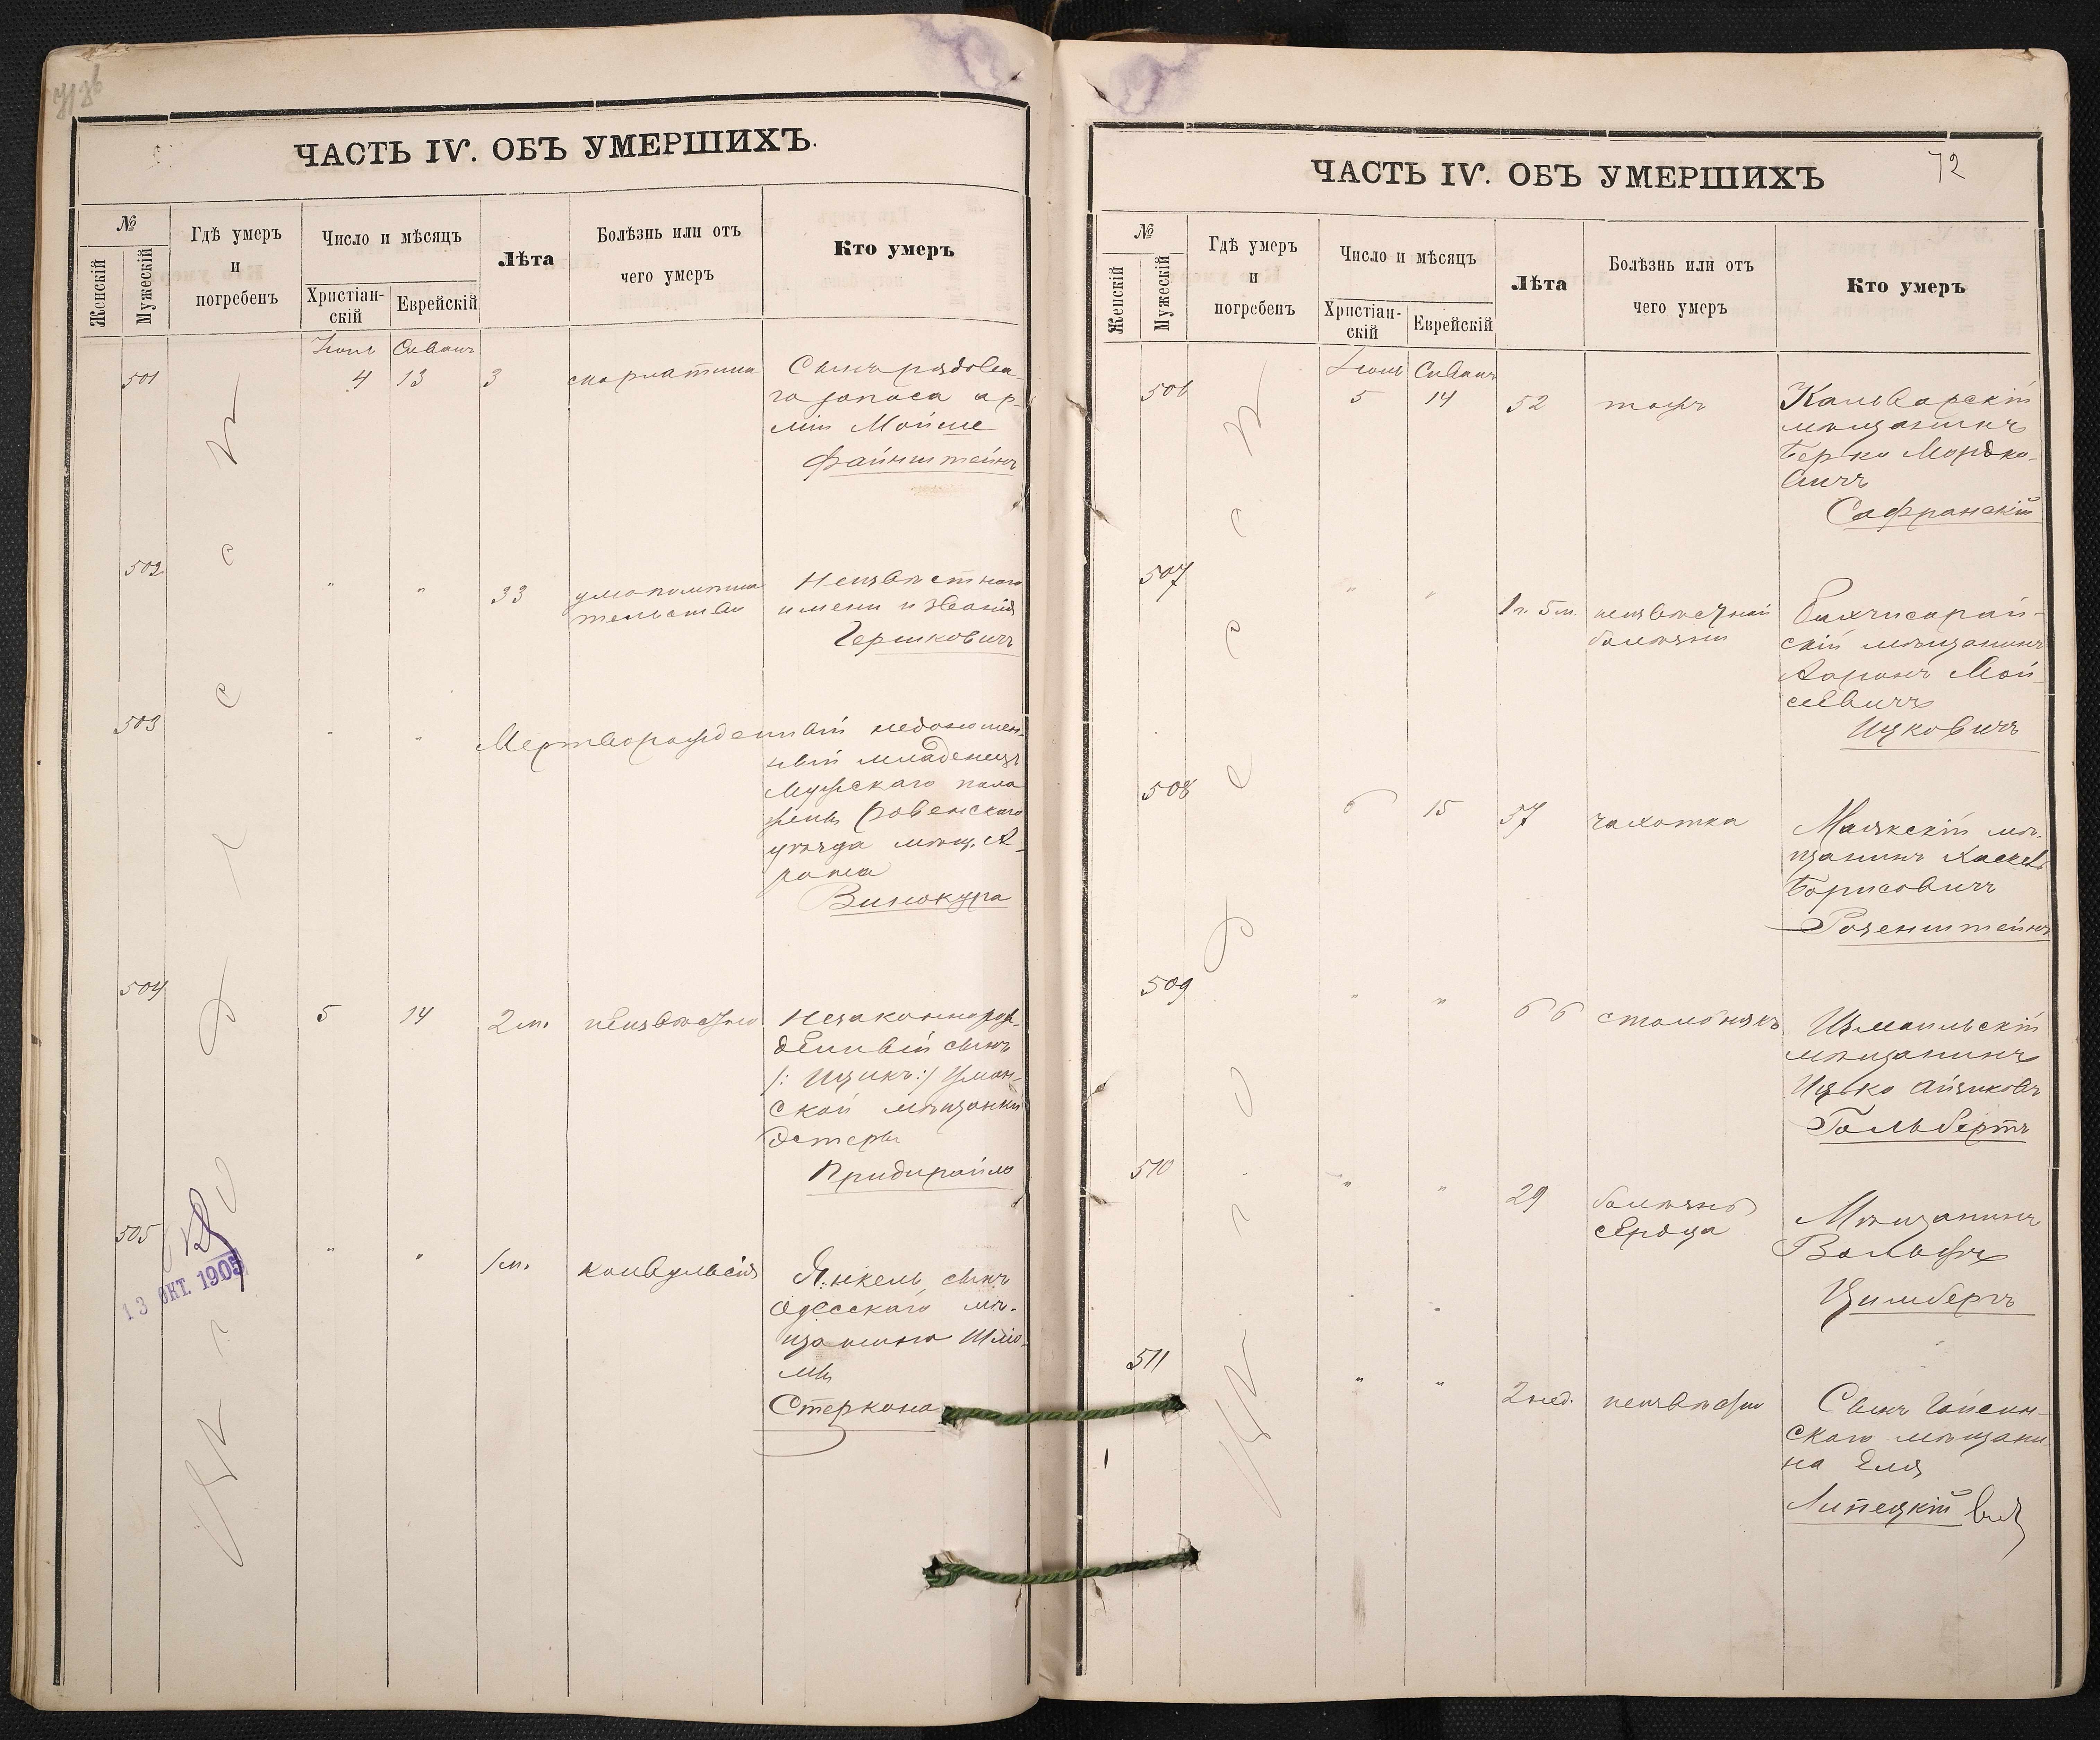 ЧАСТЬ IV. ОБЪ УМЕРШИХЪ.
№
Женскій
Мужескій
Гдѣ умеръ
и
погребенъ
Число и мѣсяцъ
Христіан-
скій
Еврейскій
Лѣта
Болѣзнь или отъ
чего умеръ
Кто умеръ
Іюнь Сиванъ
501 4 13 3 скарлатина Сынъ рядова-
го запаса ар-
міи Мойше
Файнштейнъ
502 " " 33 Неизвѣстнаго
имени и званія
Гершковичъ
503 " " Мертворожденный недоношен-
ный младенецъ
мужскаго пола
Ровенскаго
уѣзда мѣщ. А-
рона
Винокура
504 5 14 2 м. неизвѣстно Незаконнорож-
денный сынъ
/: Ицикъ :/ Уман-
ской мѣщанки
Эстеры
Придирайло
505 " " 1 м. конвульсія Янкель, сынъ
Одесскаго мѣ-
щанина Шліо-
мы
Стеркона
13 ОКТ. 1905
Одесса
ЧАСТЬ IV. ОБЪ УМЕРШИХЪ
72
№
Женскій
Мужескій
Гдѣ умеръ
и
погребенъ
Число и мѣсяцъ
Христіан-
скій
Еврейскій
Лѣта
Болѣзнь или отъ
чего умеръ
Кто умеръ
Іюнь Сиванъ
506 5 14 52 тифъ Кальварскій
мѣщанинъ
Берко Мордко-
вичъ
Сафранскій
507 " " 1 г. 5 м. неизвѣстной Бахчисарай-
болѣзни скій мѣщанинъ
Ааронъ Мой-
сеевичъ
Ицковичъ
508 6 15 57 чахотка Маякскій мѣ-
щанинъ Хаскель
Борисовичъ
Розенштейнъ
509 " " 66 столбнякъ Измаильскій
мѣщанинъ
Ицько Айзиковъ
Гольбертъ
510 " " 29 болѣзнь Мѣщанинъ
сердца Вольфъ
Цимберъ
511 " " 2 нед. неизвѣстно Сынъ Гайсин-
скаго мѣщани-
на Еля
Липецкій